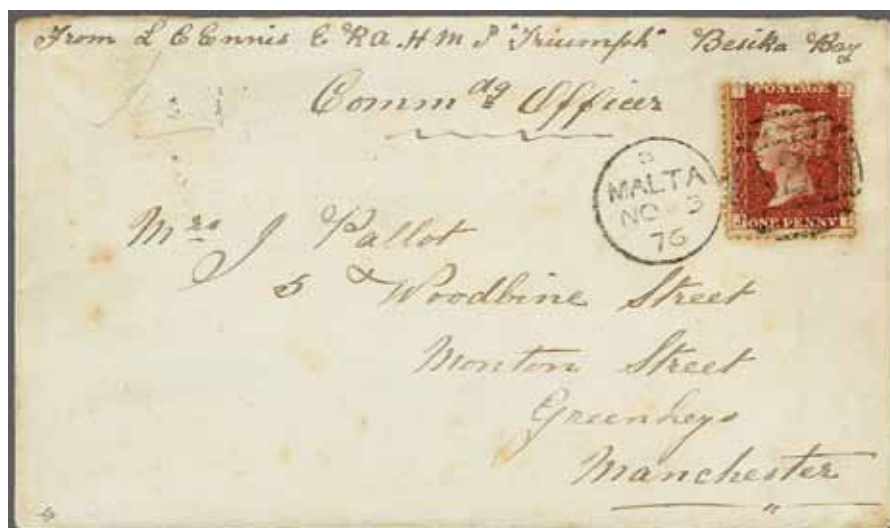 From L C Ennis E R A. H M S "Triumph" Besika Bay
Commdg Officer
POSTAGE
MALTA
NO 3
76
ONE PENNY
Mrs J Pallot
5 Woodbine Street
Monton Street
Greenheys
Manchester